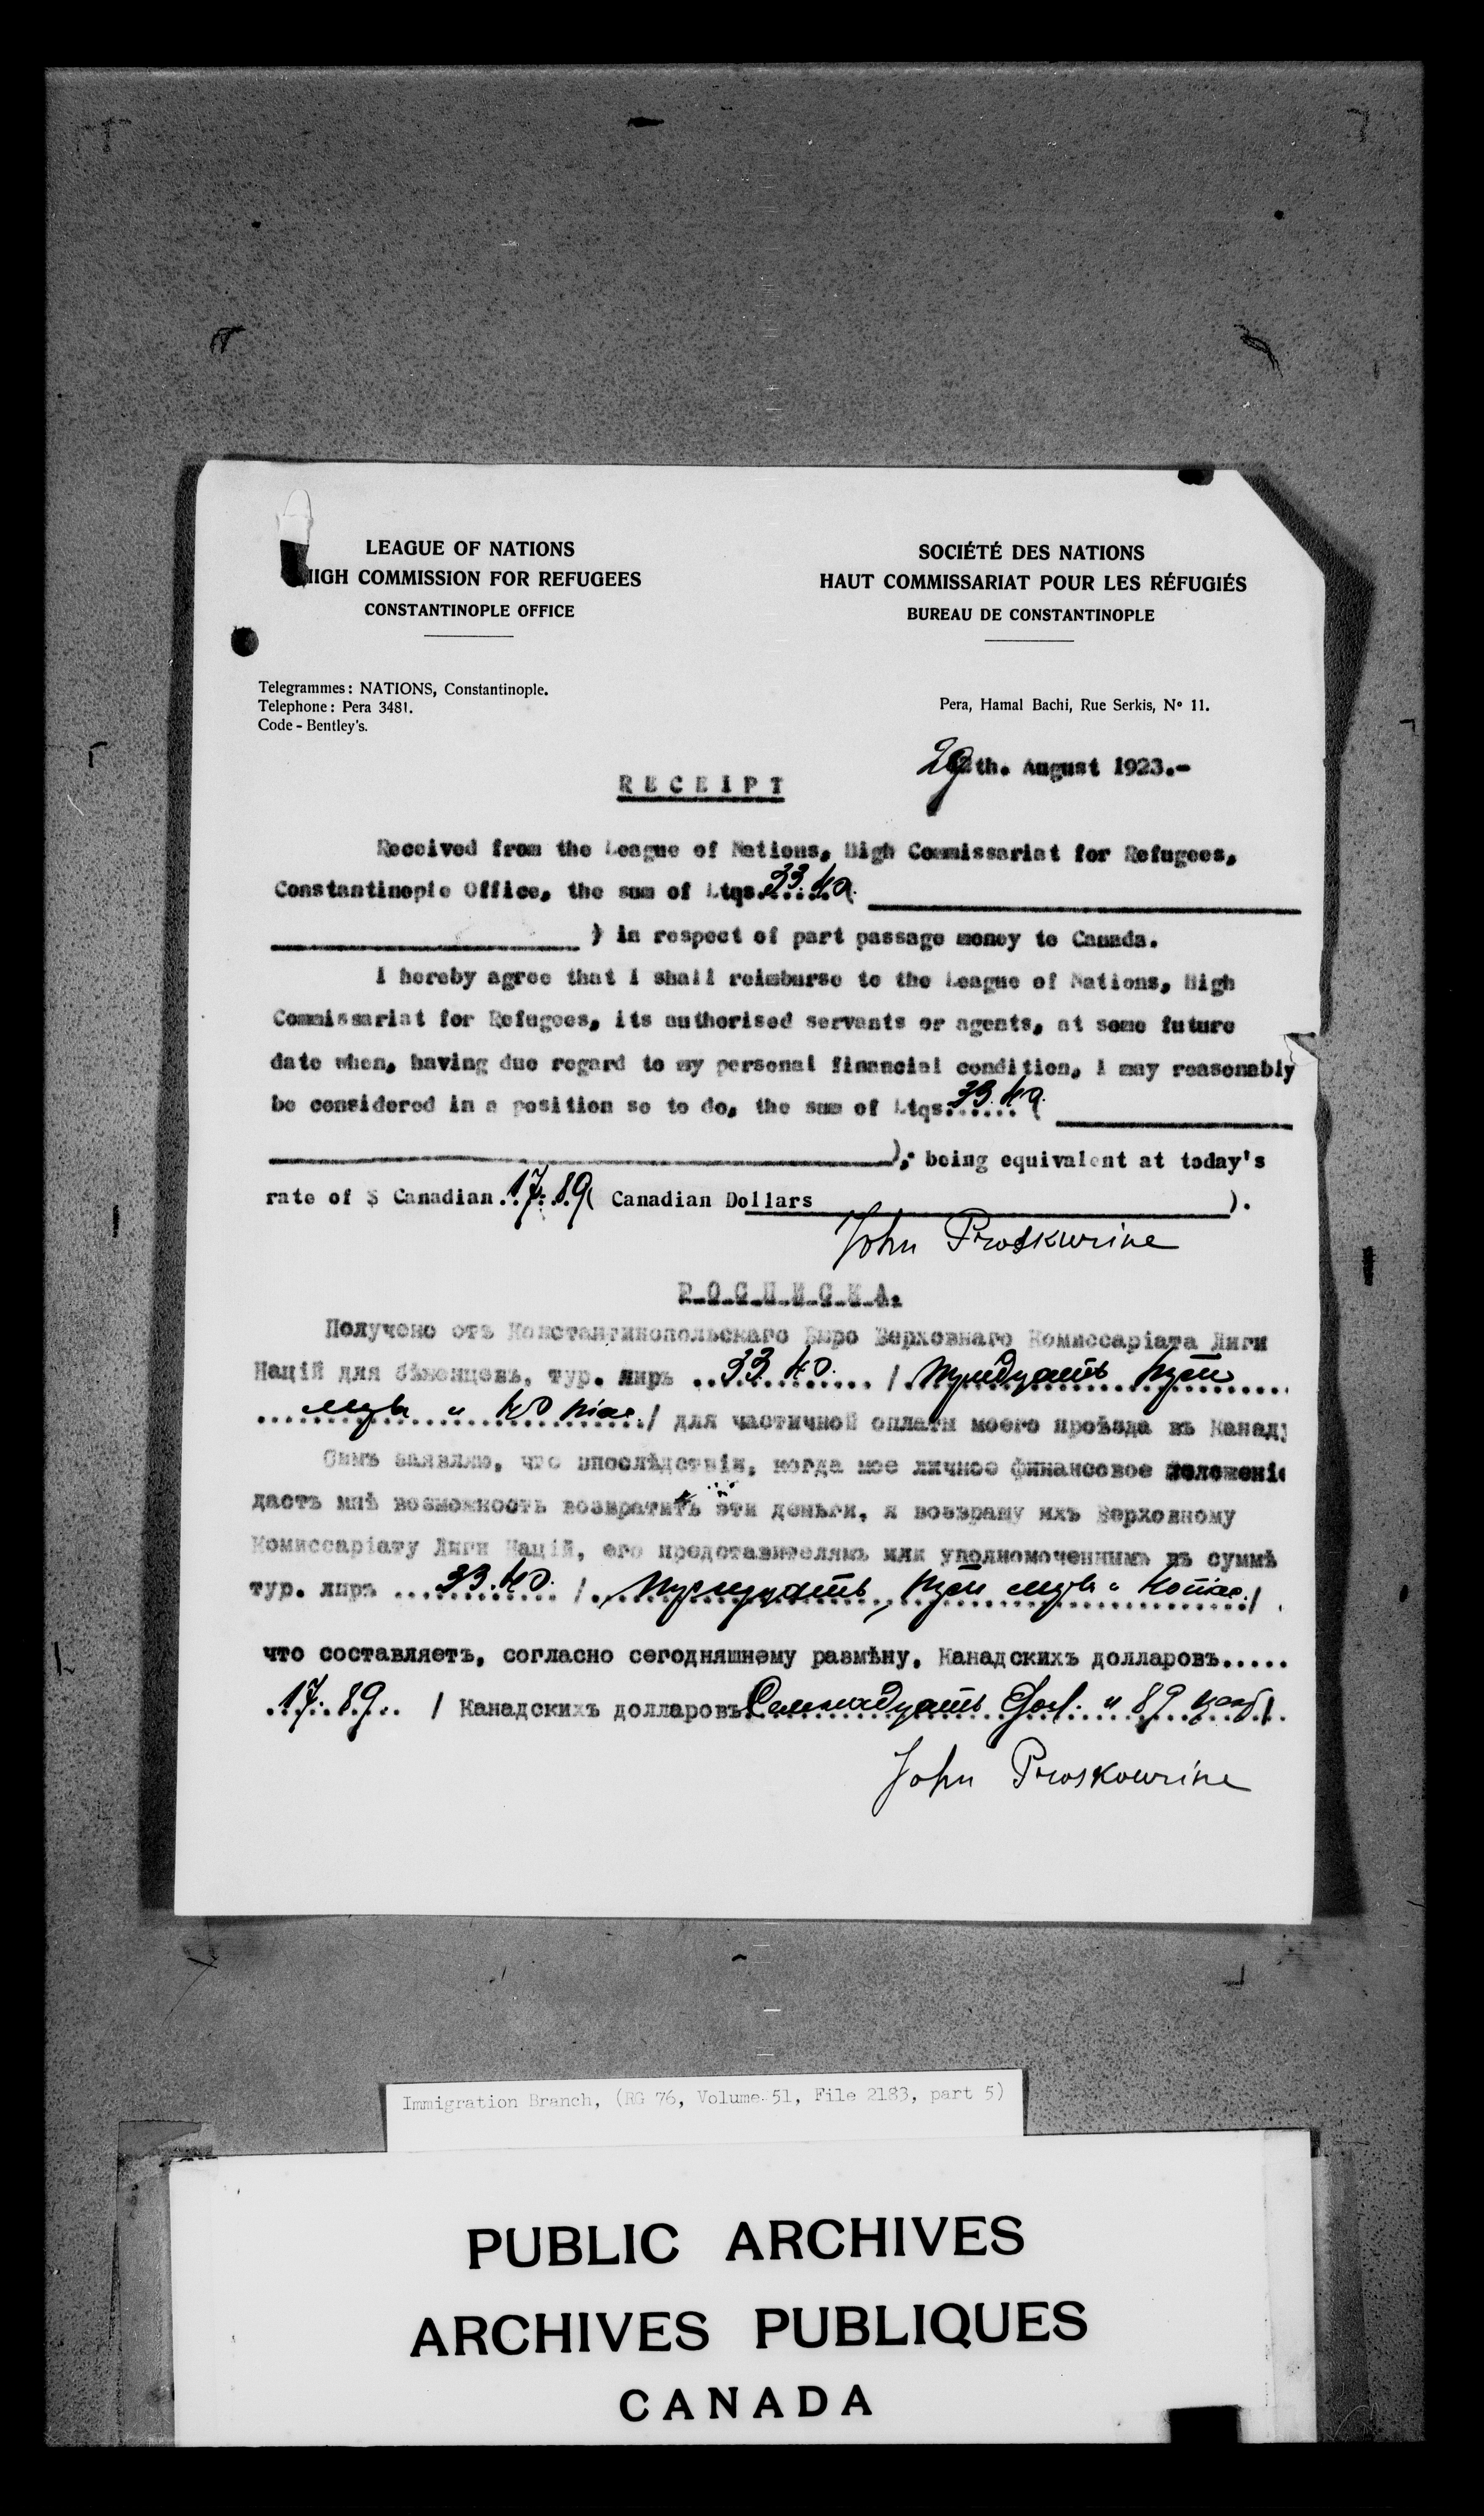 LEAGUE OF NATIONS
HIGH COMMISSION FOR REFUGEES
CONSTANTINOPLE OFFICE
SOCIÉTÉ DES NATIONS
HAUT COMMISSARIAT POUR LES RÉFUGIÉS
BUREAU DE CONSTANTINOPLE
Telegrammes: NATIONS, Constantinople.
Telephone: Pera 3481.
Code - Bentley's.
Pera, Hamal Bachi, Rue Serkis, Nº 11.
29th. August 1923.-
RECEIPT
Received from the League of Nations, High Commissariat for Refugees,
Constantinople Office, the sum of Ltqs.33.40.(
) in respect of part passage money to Canada.
I hereby agree that I shall reimburse to the League of Nations, High
Commissariat for Refugees, its authorised servants or agents, at some future
date when, having due regard to my personal financial condition, I may reasonably
be considered in a position so to do, the sum of Ltqs.33.40.(
), being equivalent at today's
rate of $ Canadian.17.89( Canadian Dollars ).
John Proskurine
Р.О.С.П.И.С.К.А.
Получено отъ Константинопольскаго Бюро Верховнаго Комиссаріата Лиги
Націй для бѣженцевъ, тур. лиръ ..33.40.... / Тридцать три
лиры и 40 піас./ для частичной оплаты моего проѣзда въ Канаду
Симъ заявляю, что впослѣдствіи, когда мое личное финансовое положеніе
дастъ мнѣ возможность возвратить эти деньги, я возвращу ихъ Верховному
Комиссаріату Лиги Націй, его представителямъ или уполномоченнымъ въ суммѣ
тур. лиръ ...33.40... /. Тридцать три лиры и 40 піас./.
что составляетъ, согласно сегодняшнему размѣну, Канадскихъ долларовъ.....
.17.89.. / Канадскихъ долларовъ Семнадцать дол. и 89 цент/.
John Proskourine
Immigration Branch, (RG 76, Volume 51, File 2183, part 5)
PUBLIC ARCHIVES
ARCHIVES PUBLIQUES
CANADA